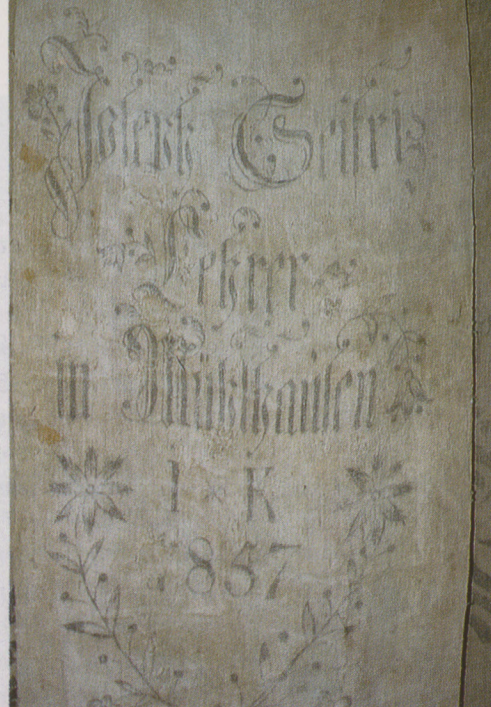 Joseph Seifriz
Lehrer
in Mühlhausen
I K
1857